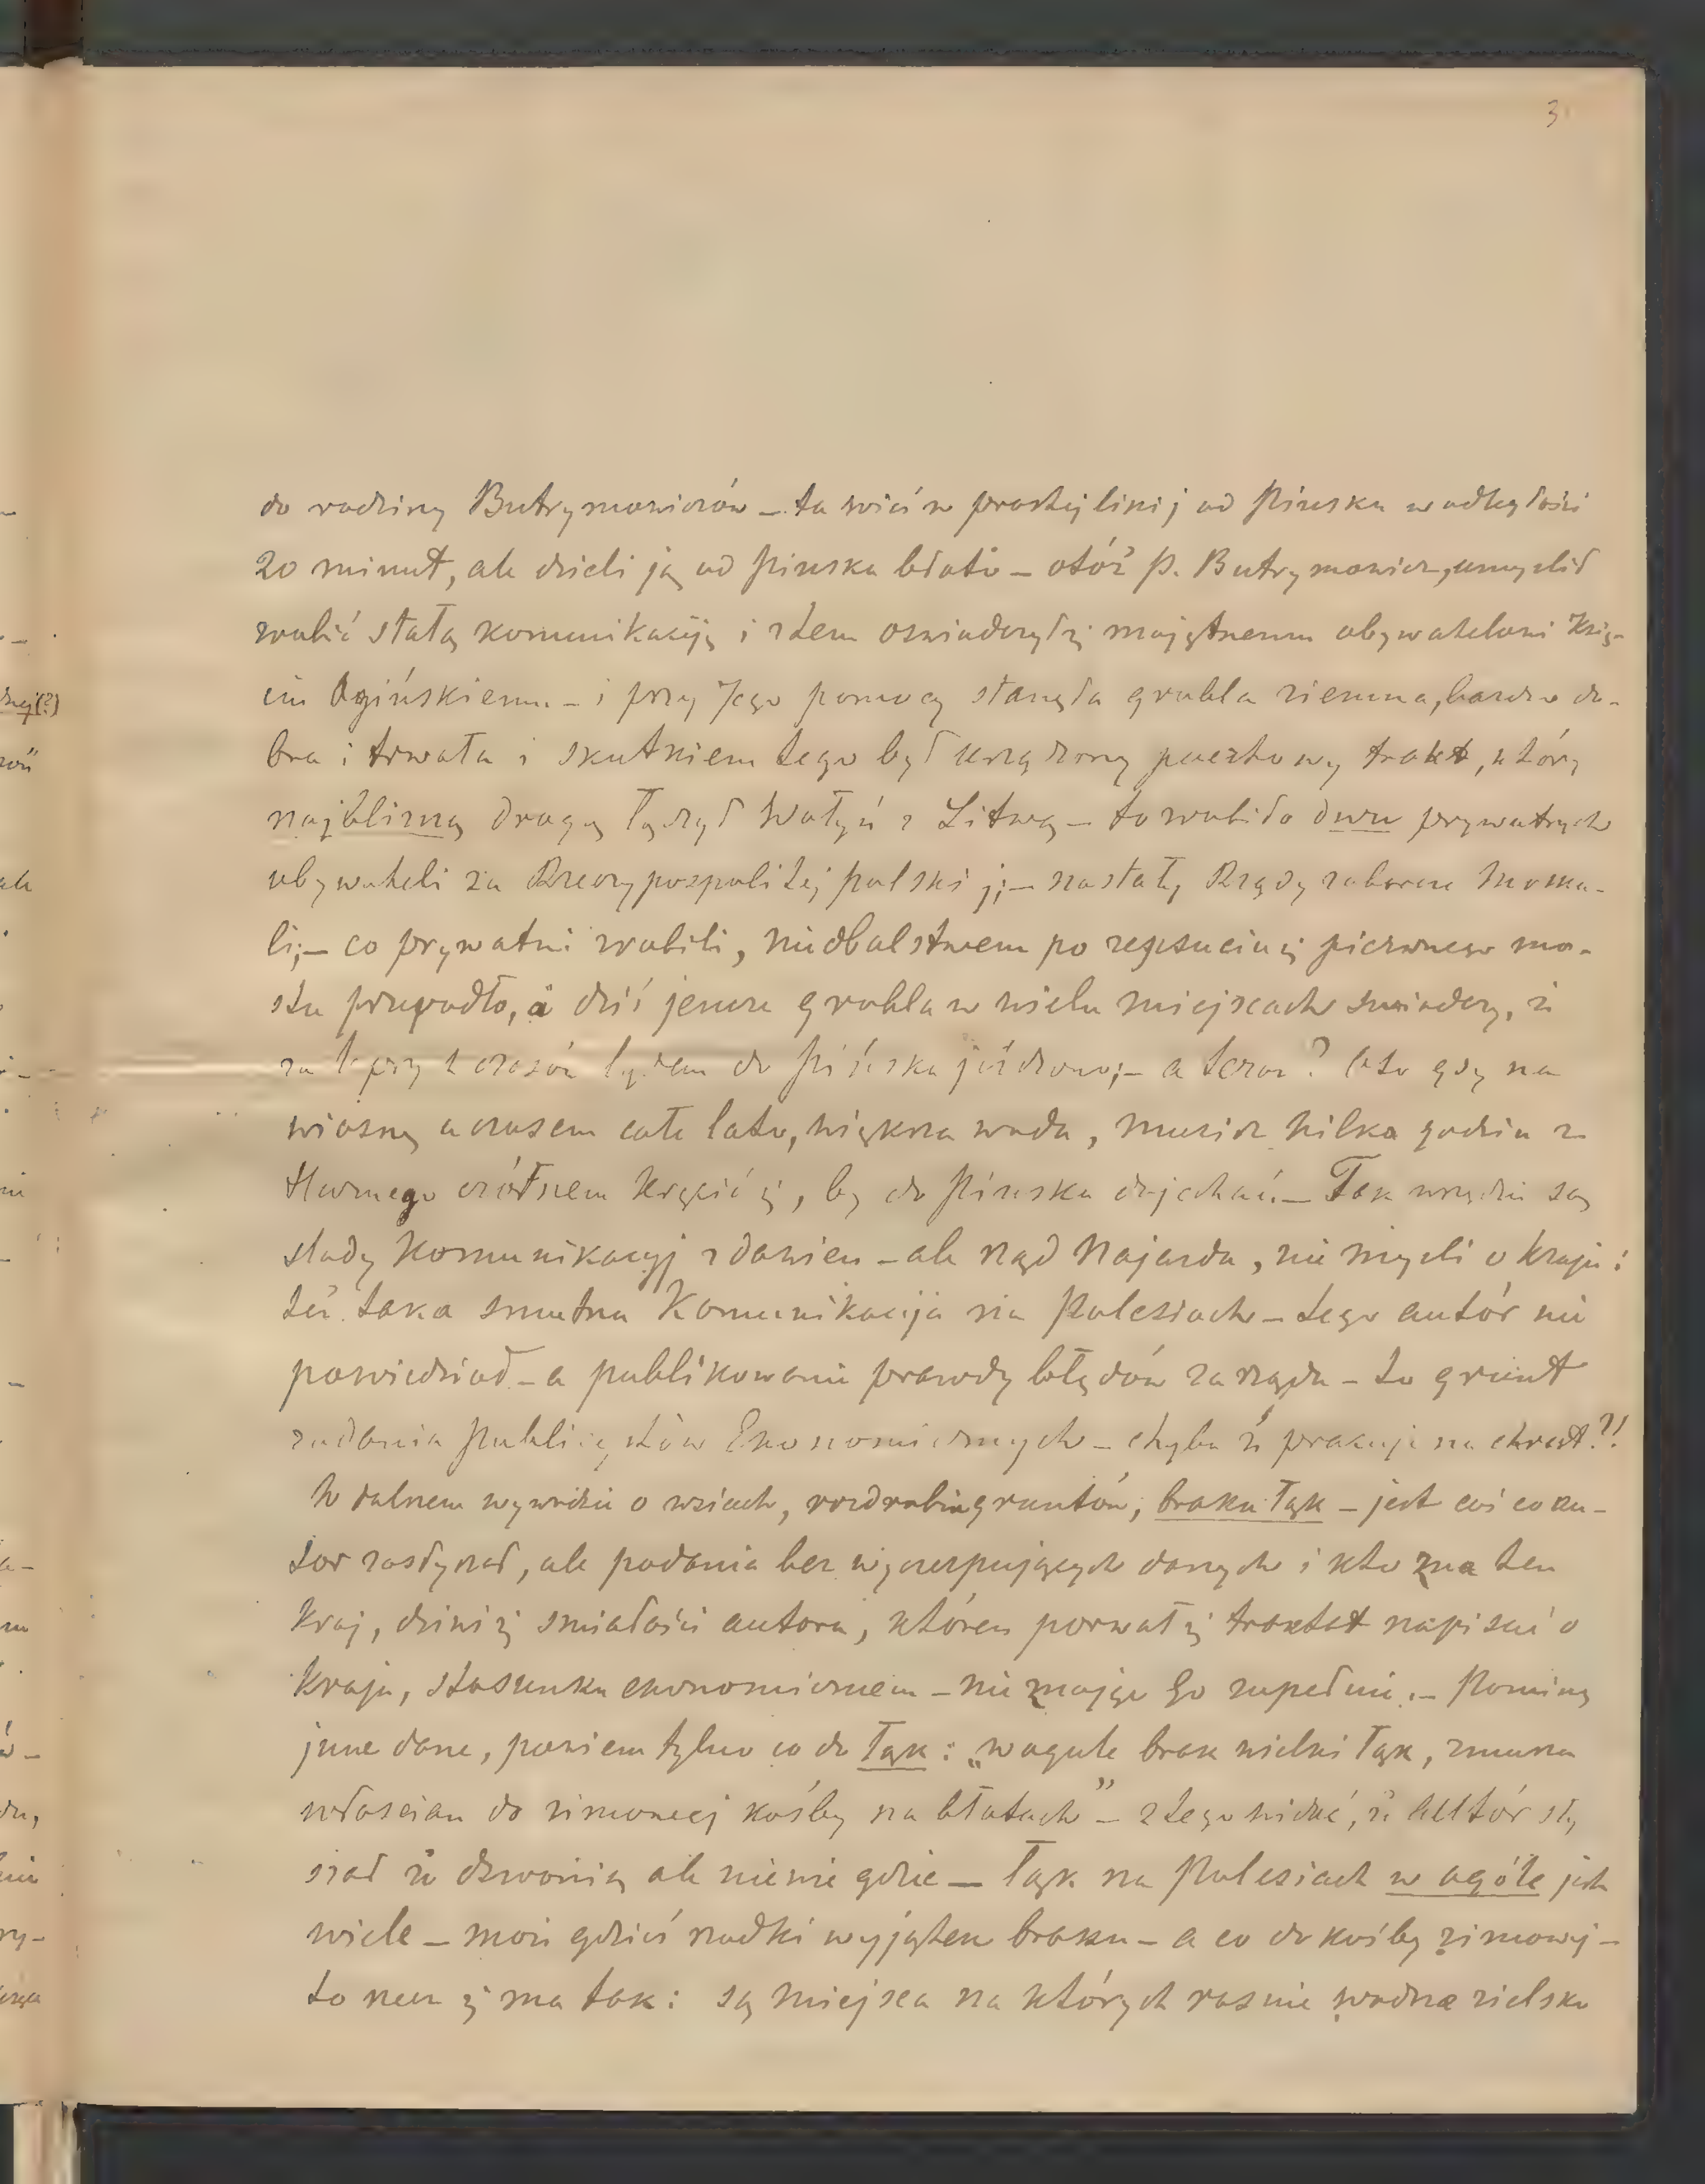 3
do rodziny Butrymowiczów – ta wieś w prostej linij od Pińska w odległości
20 minut, ale dzieli ją od Pinska błoto – otóż p. Butrymowicz, umyslił
zrobić stałą komunikacyję i z tem oswiadczył się majętnemu obywatelowi Księ-
ciu Ogińskiemu – i przy Jego pomocy stanęła grobla ziemna, bardzo do-
bra i trwała i skutkiem tego był urządzony pocztowy trakt, który
najbliższą drogą łączył Wołyń z Litwą – to zrobiło dwu prywatnych
obywateli za Rzeczypospolitej polskiej; – nastały Rządy zaborcze Moska-
li; – co prywatni zrobili, niedbalstwem po zepsuciu się pierwszego mo-
stu przepadło, a dziś jeszcze grobla w wielu miejscach swiadczy, że
za lepszych czasów lądem do Pińska jeżdzono; – a teraz? Oto gdy na
wiosnę a czasem całe lato, większa woda, musisz kilka godzin z
czółnem kręcić się, by do Pinska dojechać. – Tak wszędzie są
slady Komunikacyj z dawien – ale rząd Najazdu, nie mysli o kraju i
też taka smutna Komunikacija na Polesiach – tego autór nie
powiedział – a publikowanie prawdy błędów zarządu – to grunt
zadania Publicystów Ekonomicznych – chyba że pracuje na chrest?!
W dalszem wywodzie o wsiach, rozdrobie gruntów, braku łąk – jest coś co au-
tor zasłyszał, ale podania bez wyczerpujących danych i kto zna ten
Kraj, dziwi się smiałości autora, któren porwał się traktat napisać o
Kraju, stosunku ekonomicznem – nie znając Go zupełnie. – Pominę
inne dane, powiem tylko co do łąk: „w ogule brak wielki łąk, zmusza
włoscian do zimowej kośby na błotach” – z tego widać, że autór sły
szał że dzwonią ale nie wie gdzie – łąk na Polesiach w ogóle jest
wiele – może gdzieś rzadki wyjątek braku – a co do kośby zimowej –
to rzecz się ma tak: są miejsca na których rośnie wodne zielsko